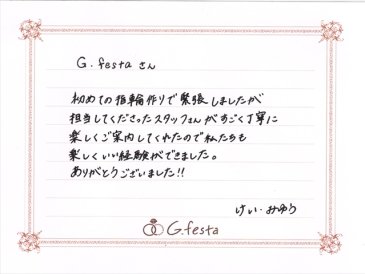 G.festa さん
初めての指輪作りで緊張しましたが
担当してくださったスタッフさんがすごく丁寧に
楽しくご案内してくれたので私たちも
楽しくいい経験ができました。
ありがとうございました!!
けい・みゆう
G.festa